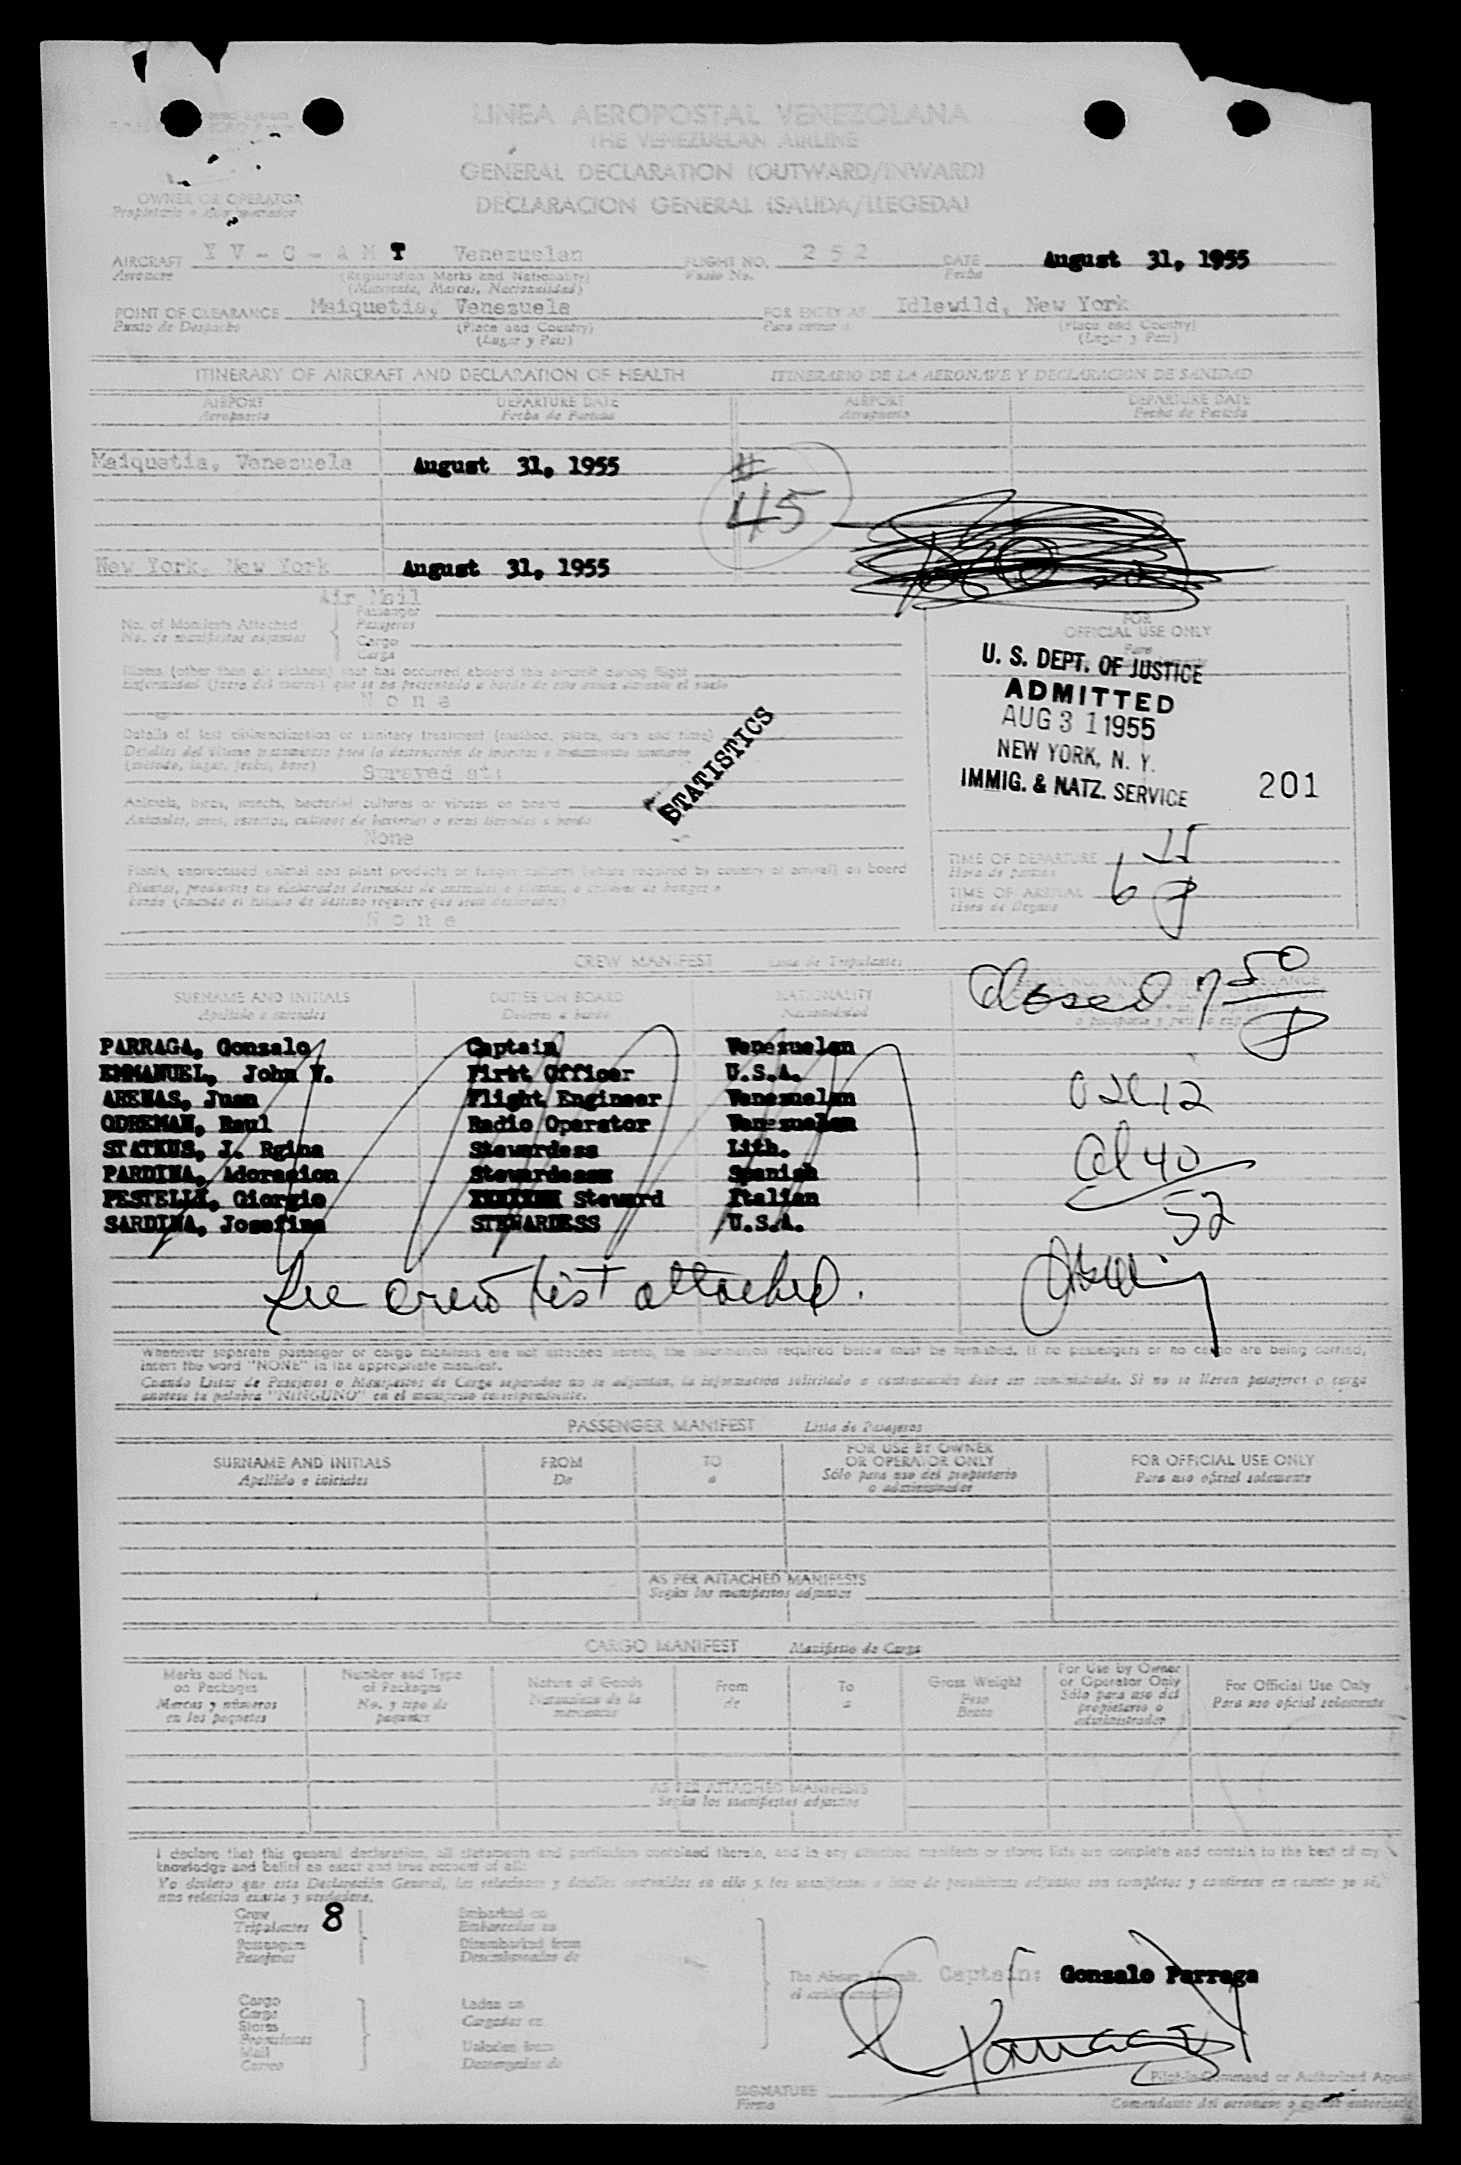 LINEA AEROPOSTAL VENEZOLANA
THE VENEZUELAN AIRLINE
GENERAL DECLARATION (OUTWARD/INWARD)
DECLARACION GENERAL (SALIDA/LLEGEDA)
OWNER OR OPERATOR
AIRCRAFT Y V - C - A M T Venezuelan FLIGHT NO. 252 DATE August 31, 1955
Aeronave (Registration Marks and Nationality) Fecha
(Matricula, Marcas, Nacionalidad)
POINT OF CLEARANCE Maiquetia, Venezuela FOR ENTRY AT Idlewild, New York
Punto de Despacho (Place and Country) Para entrar a (Place and Country)
(Lugar y Pais) (Lugar y Pais)
ITINERARY OF AIRCRAFT AND DECLARATION OF HEALTH ITINERARIO DE LA AERONAVE Y DECLARACION DE SANIDAD
AIRPORT DEPARTURE DATE AIRPORT DEPARTURE DATE
Aeropuerto Fecha de Partida Aeropuerto Fecha de Partida
Maiquetia, Venezuela August 31, 1955 #
45
New York, New York August 31, 1955
Air Mail
No. of Manifests Attached Passenger
No. de manifiestos adjuntos Pasajeros
Cargo
Carga
FOR
OFFICIAL USE ONLY
Para
U. S. DEPT. OF JUSTICE
ADMITTED
AUG 31 1955
NEW YORK, N. Y.
IMMIG. & NATZ. SERVICE 201
Illness (other than air sickness) that has occurred aboard the aircraft during flight
None
STATISTICS
Details of last disinsectization or sanitary treatment (method, place, date and time)
(método, lugar, fecha, hora) Sprayed at:
Animals, birds, insects, bacterial cultures or viruses on board
None
Plants, unprocessed animal and plant products or fungus cultures (where required by country of arrival) on board
None
TIME OF DEPARTURE
Hora de partida
TIME OF ARRIVAL
CREW MANIFEST Lista de Tripulantes
Closed 7 50
SURNAME AND INITIALS DUTIES ON BOARD NATIONALITY
Apellido e iniciales Deberes a bordo Nacionalidad
PARRAGA, Gonzalo Captain Venezuelan
EMMANUEL, John V. First Officer U.S.A.
ARENAS, Juan Flight Engineer Venezuelan
ODREMAN, Raul Radio Operator Venezuelan
STATKUS, J. Rgina Stewardess Lith.
PARDINA, Adoracion Stewardess Spanish
PESTELLI, Giorgio Steward Italian
SARDINA, Josefina STEWARDESS U.S.A.
40
52
See crew list attached.
Whenever separate passenger or cargo manifests are not attached hereto, the information required below must be furnished. If no passengers or no cargo are being carried,
insert the word "NONE" in the appropriate manifest.
Cuando Listas de Pasajeros o Manifiestos de Carga separados no se adjuntan, la información solicitada a continuación debe ser suministrada. Si no se llevan pasajeros o carga
anotese la palabra "NINGUNO" en el manifiesto correspondiente.
PASSENGER MANIFEST Lista de Pasajeros
SURNAME AND INITIALS FROM TO FOR USE BY OWNER OR OPERATOR ONLY FOR OFFICIAL USE ONLY
Apellido e iniciales De a Sólo para uso del propietario o administrador Para uso oficial solamente
AS PER ATTACHED MANIFESTS
Según los manifiestos adjuntos
CARGO MANIFEST Manifiesto de Carga
Marks and Nos. on Packages Number and Type of Packages Nature of Goods From To Gross Weight For Use by Owner or Operator Only For Official Use Only
Marcas y números en los paquetes No. y tipo de paquetes Naturaleza de la mercancia de a Peso Bruto Sólo para uso del propietario o administrador Para uso oficial solamente
AS PER ATTACHED MANIFESTS
Según los manifiestos adjuntos
I declare that this general declaration, all statements and particulars contained therein, and in any attached manifests or stores lists are complete and contain to the best of my
knowledge and belief an exact and true account of all:
una relacion exacta y verdadera.
Crew Embarked on
Tripulantes 8 Embarcados en
Passengers Disembarked from
Pasajeros Desembarcados de
The Above Aircraft. Captain: Gonzalo Parraga
Cargo Laden on
Carga Cargados en
Stores
Provisiones
Mail Unladen from
Correo Descargados de
SIGNATURE Pilot-in-Command or Authorized Agent
Firma Comandante del aeronave o agente autorizado